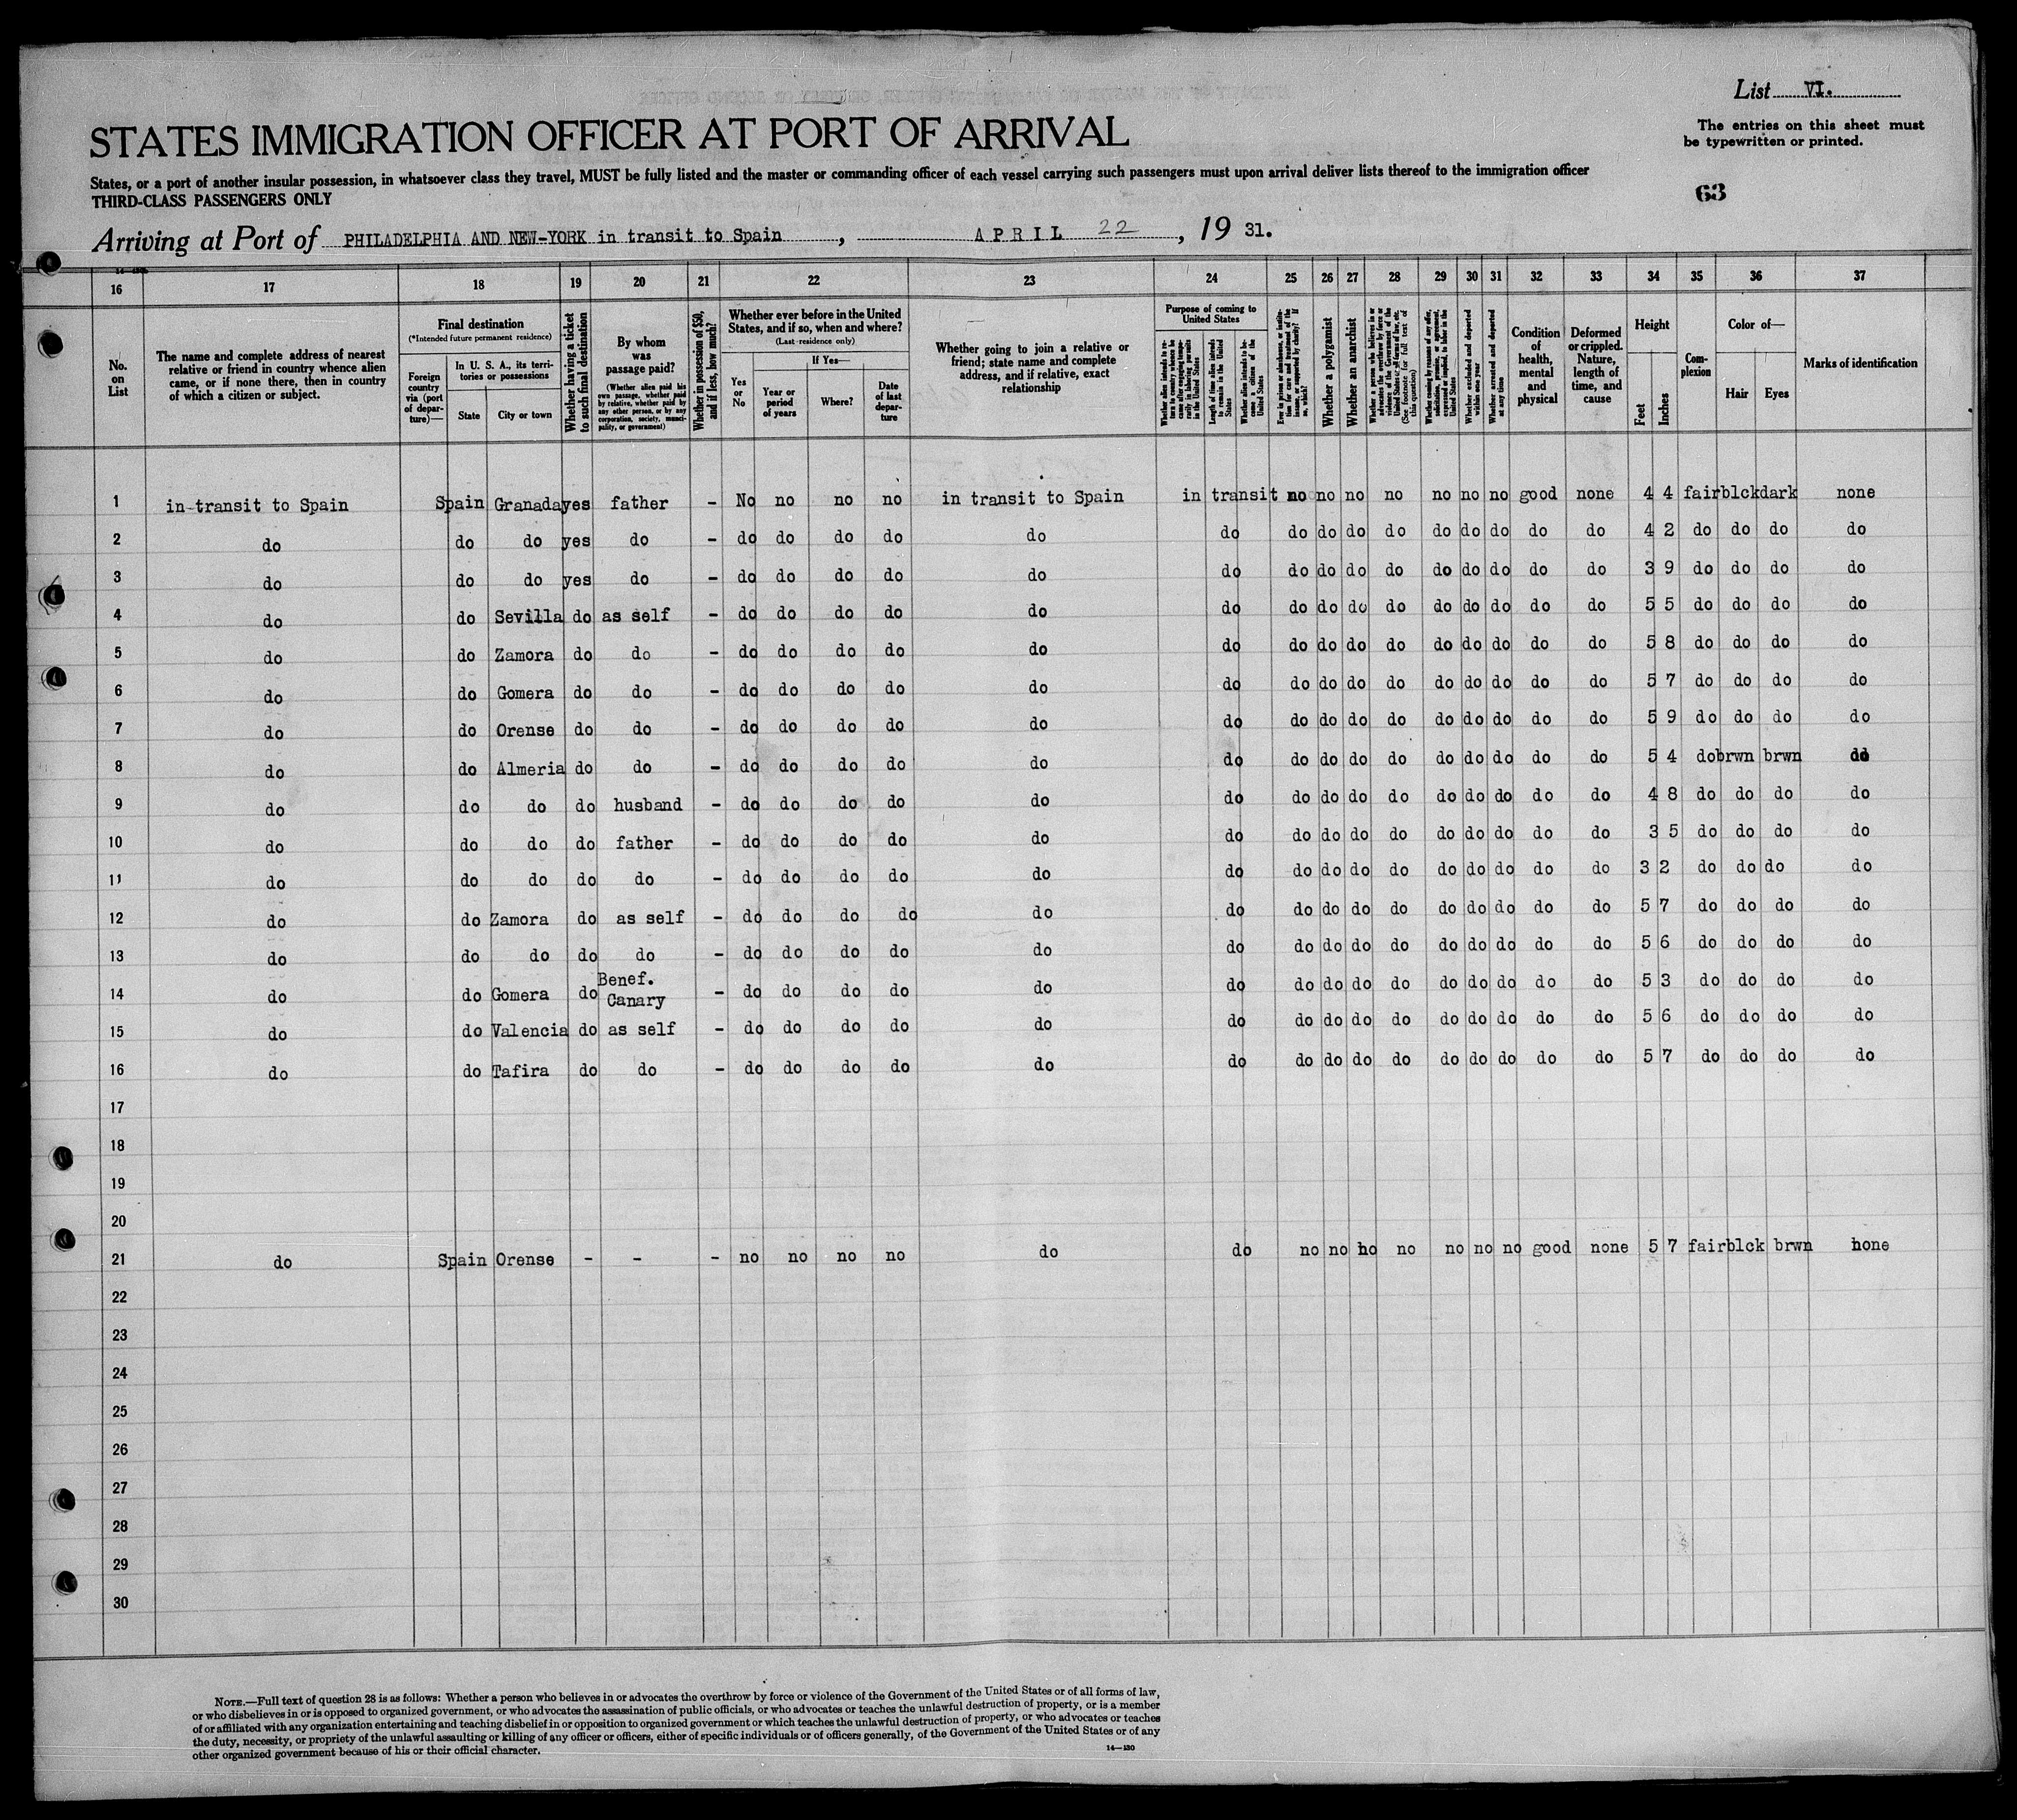 List VI.
STATES IMMIGRATION OFFICER AT PORT OF ARRIVAL
The entries on this sheet must
be typewritten or printed.
States, or a port of another insular possession, in whatsoever class they travel, MUST be fully listed and the master or commanding officer of each vessel carrying such passengers must upon arrival deliver lists thereof to the immigration officer
THIRD-CLASS PASSENGERS ONLY
63
Arriving at Port of PHILADELPHIA AND NEW-YORK in transit to Spain , APRIL 22 , 19 31.
16 17 18 19 20 21 22 23 24 25 26 27 28 29 30 31 32 33 34 35 36 37
No.
on
List
The name and complete address of nearest
relative or friend in country whence alien
came, or if none there, then in country
of which a citizen or subject.
Final destination
(*Intended future permanent residence)
Foreign
country
via (port
of depar-
ture)—
In U. S. A., its terri-
tories or possessions
State City or town
Whether having a ticket
to such final destination
By whom
was
passage paid?
(Whether alien paid his
own passage, whether paid
by relative, whether paid by
any other person, or by any
corporation, society, munici-
pality, or government)
Whether in possession of $50,
and if less, how much?
Whether ever before in the United
States, and if so, when and where?
(Last residence only)
Yes
or
No
If Yes—
Year or
period
of years
Where?
Date
of last
depar-
ture
Whether going to join a relative or
friend; state name and complete
address, and if relative, exact
relationship
Purpose of coming to
United States
Whether alien intends to re-
turn to country whence he
came after engaging tempo-
rarily in laboring pursuits
in the United States
Length of time alien intends
to remain in the United
States
Whether alien intends to be-
come a citizen of the
United States
Ever in prison or almshouse, or institu-
tion for care and treatment of the
insane, or supported by charity? If
so, which?
Whether a polygamist
Whether an anarchist
Whether a person who believes in or
advocates the overthrow by force or
violence of the Government of the
United States or all forms of law, etc.
(See footnote for full text of
this question)
Whether coming by reason of any offer,
solicitation, promise, or agreement,
expressed or implied, to labor in the
United States
Whether excluded and deported
within one year
Whether arrested and deported
at any time
Condition
of
health,
mental
and
physical
Deformed
or crippled.
Nature,
length of
time, and
cause
Height
Feet Inches
Com-
plexion
Color of—
Hair Eyes
Marks of identification
1 in transit to Spain Spain Granada yes father - No no no no in transit to Spain in transit no no no no no no no good none 4 4 fair blck dark none
2 do do do yes do - do do do do do do do do do do do do do do do 4 2 do do do do
3 do do do yes do - do do do do do do do do do do do do do do do 3 9 do do do do
4 do do Sevilla do as self - do do do do do do do do do do do do do do do 5 5 do do do do
5 do do Zamora do do - do do do do do do do do do do do do do do do 5 8 do do do do
6 do do Gomera do do - do do do do do do do do do do do do do do do 5 7 do do do do
7 do do Orense do do - do do do do do do do do do do do do do do do 5 9 do do do do
8 do do Almeria do do - do do do do do do do do do do do do do do do 5 4 do brwn brwn do
9 do do do do husband - do do do do do do do do do do do do do do do 4 8 do do do do
10 do do do do father - do do do do do do do do do do do do do do do 3 5 do do do do
11 do do do do do - do do do do do do do do do do do do do do do 3 2 do do do do
12 do do Zamora do as self - do do do do do do do do do do do do do do do 5 7 do do do do
13 do do do do do - do do do do do do do do do do do do do do do 5 6 do do do do
14 do do Gomera do Benef. Canary - do do do do do do do do do do do do do do do 5 3 do do do do
15 do do Valencia do as self - do do do do do do do do do do do do do do do 5 6 do do do do
16 do do Tafira do do - do do do do do do do do do do do do do do do 5 7 do do do do
17
18
19
20
21 do Spain Orense - - - no no no no do do no no no no no no no good none 5 7 fair blck brwn none
22
23
24
25
26
27
28
29
30
NOTE.—Full text of question 28 is as follows: Whether a person who believes in or advocates the overthrow by force or violence of the Government of the United States or of all forms of law,
or who disbelieves in or is opposed to organized government, or who advocates the assassination of public officials, or who advocates or teaches the unlawful destruction of property, or is a member
of or affiliated with any organization entertaining and teaching disbelief in or opposition to organized government or which teaches the unlawful destruction of property, or who advocates or teaches
the duty, necessity, or propriety of the unlawful assaulting or killing of any officer or officers, either of specific individuals or of officers generally, of the Government of the United States or of any
other organized government because of his or their official character.
14—130